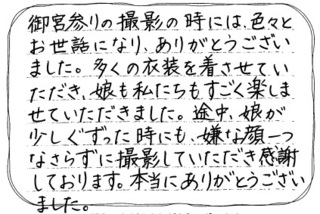 御宮参りの撮影の時には、色々と
お世話になり、ありがとうござい
ました。多くの衣装を着させてい
ただき、娘も私たちもすごく楽しま
せていただきました。途中、娘が
少しぐずった時にも、嫌な顔一つ
なさらずに撮影していただき感謝
しております。本当にありがとうござい
ました。